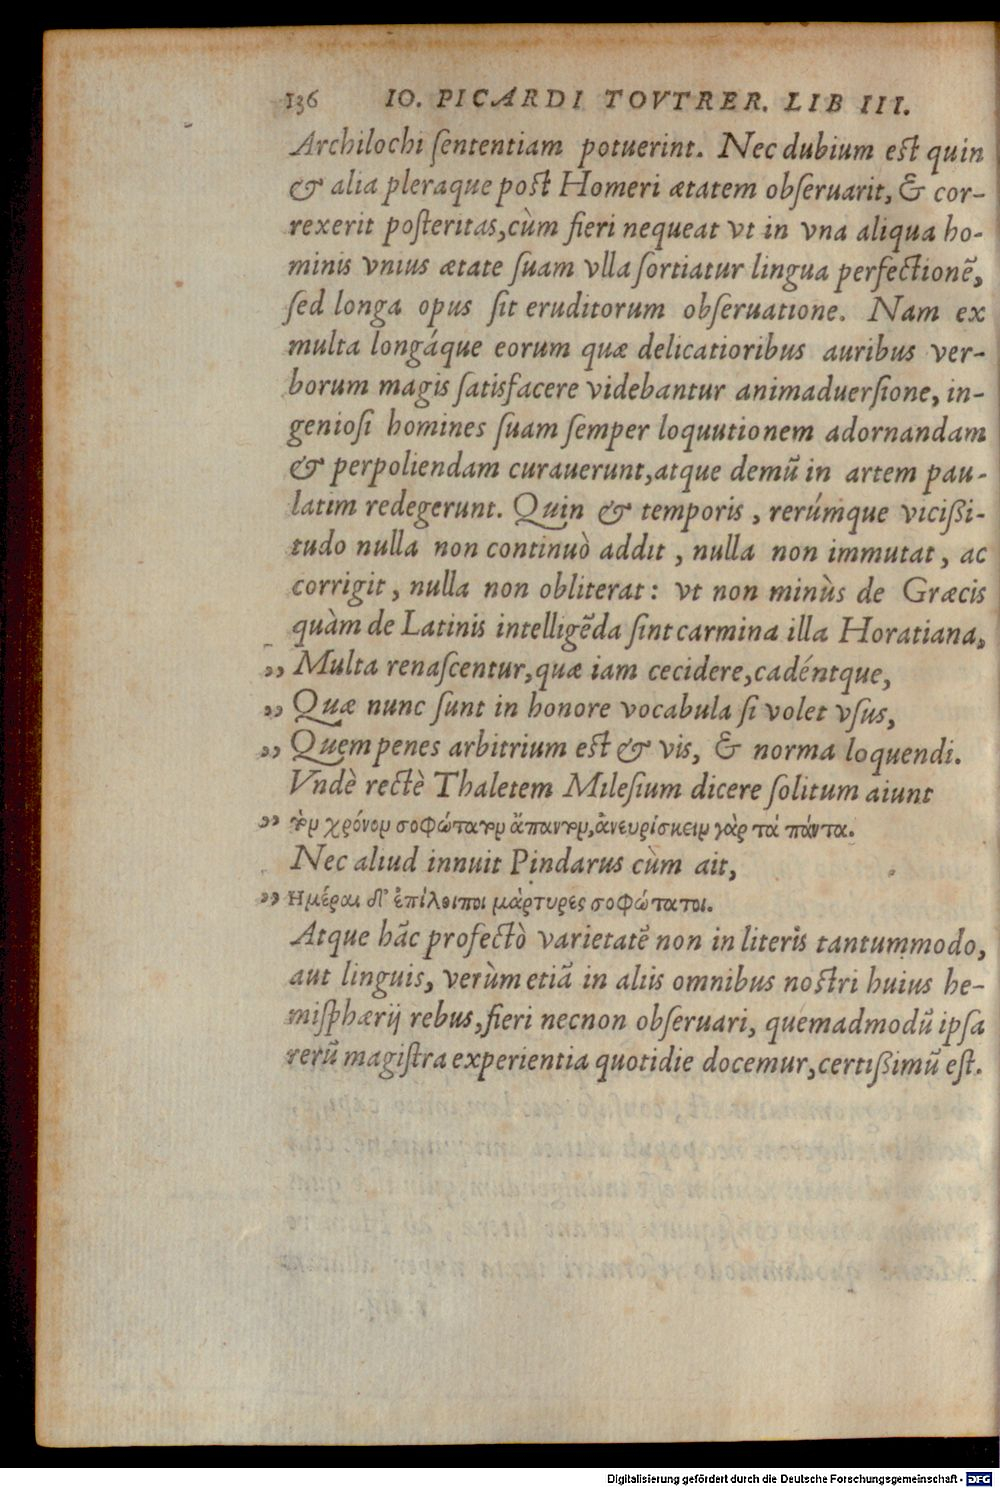 136 IO. PICARDI TOVTRER. LIB III.
Archilochi ſententiam potuerint. Nec dubium est quin
& alia pleraque post Homeri ætatem obſeruarit, & cor-
rexerit poſteritas, cùm fieri nequeat vt in vna aliqua ho-
minis vnius ætate ſuam vlla ſortiatur lingua perfectionē,
ſed longa opus ſit eruditorum obſeruatione. Nam ex
multa longáque eorum quæ delicatioribus auribus ver-
borum magis ſatisfacere videbantur animaduerſione, in-
genioſi homines ſuam ſemper loquutionem adornandam
& perpoliendam curauerunt, atque demū in artem pau-
latim redegerunt. Quin & temporis, rerúmque vicißi-
tudo nulla non continuò addit, nulla non immutat, ac
corrigit, nulla non obliterat: vt non minùs de Græcis
quàm de Latinis intelligēda ſint carmina illa Horatiana,
„ Multa renaſcentur, quæ iam cecidere, cadéntque,
„ Quæ nunc ſunt in honore vocabula ſi volet vſus,
„ Quem penes arbitrium est & vis, & norma loquendi.
Vndè rectè Thaletem Mileſium dicere ſolitum aiunt
„ τὸν χρόνον σοφώτατον ἅπαντων, ἀνευρίσκειν γὰρ τὰ πάντα.
Nec aliud innuit Pindarus cùm ait,
„ Ημέραι δ' ἐπίλοιποι μάρτυρες σοφώτατοι.
Atque hāc profectò varietatē non in literis tantummodo,
aut linguis, verùm etiā in aliis omnibus noſtri huius he-
miſphærij rebus, fieri necnon obſeruari, quemadmodū ipſa
rerū magiſtra experientia quotidie docemur, certißimū eſt.
Digitalisierung gefördert durch die Deutsche Forschungsgemeinschaft - DFG